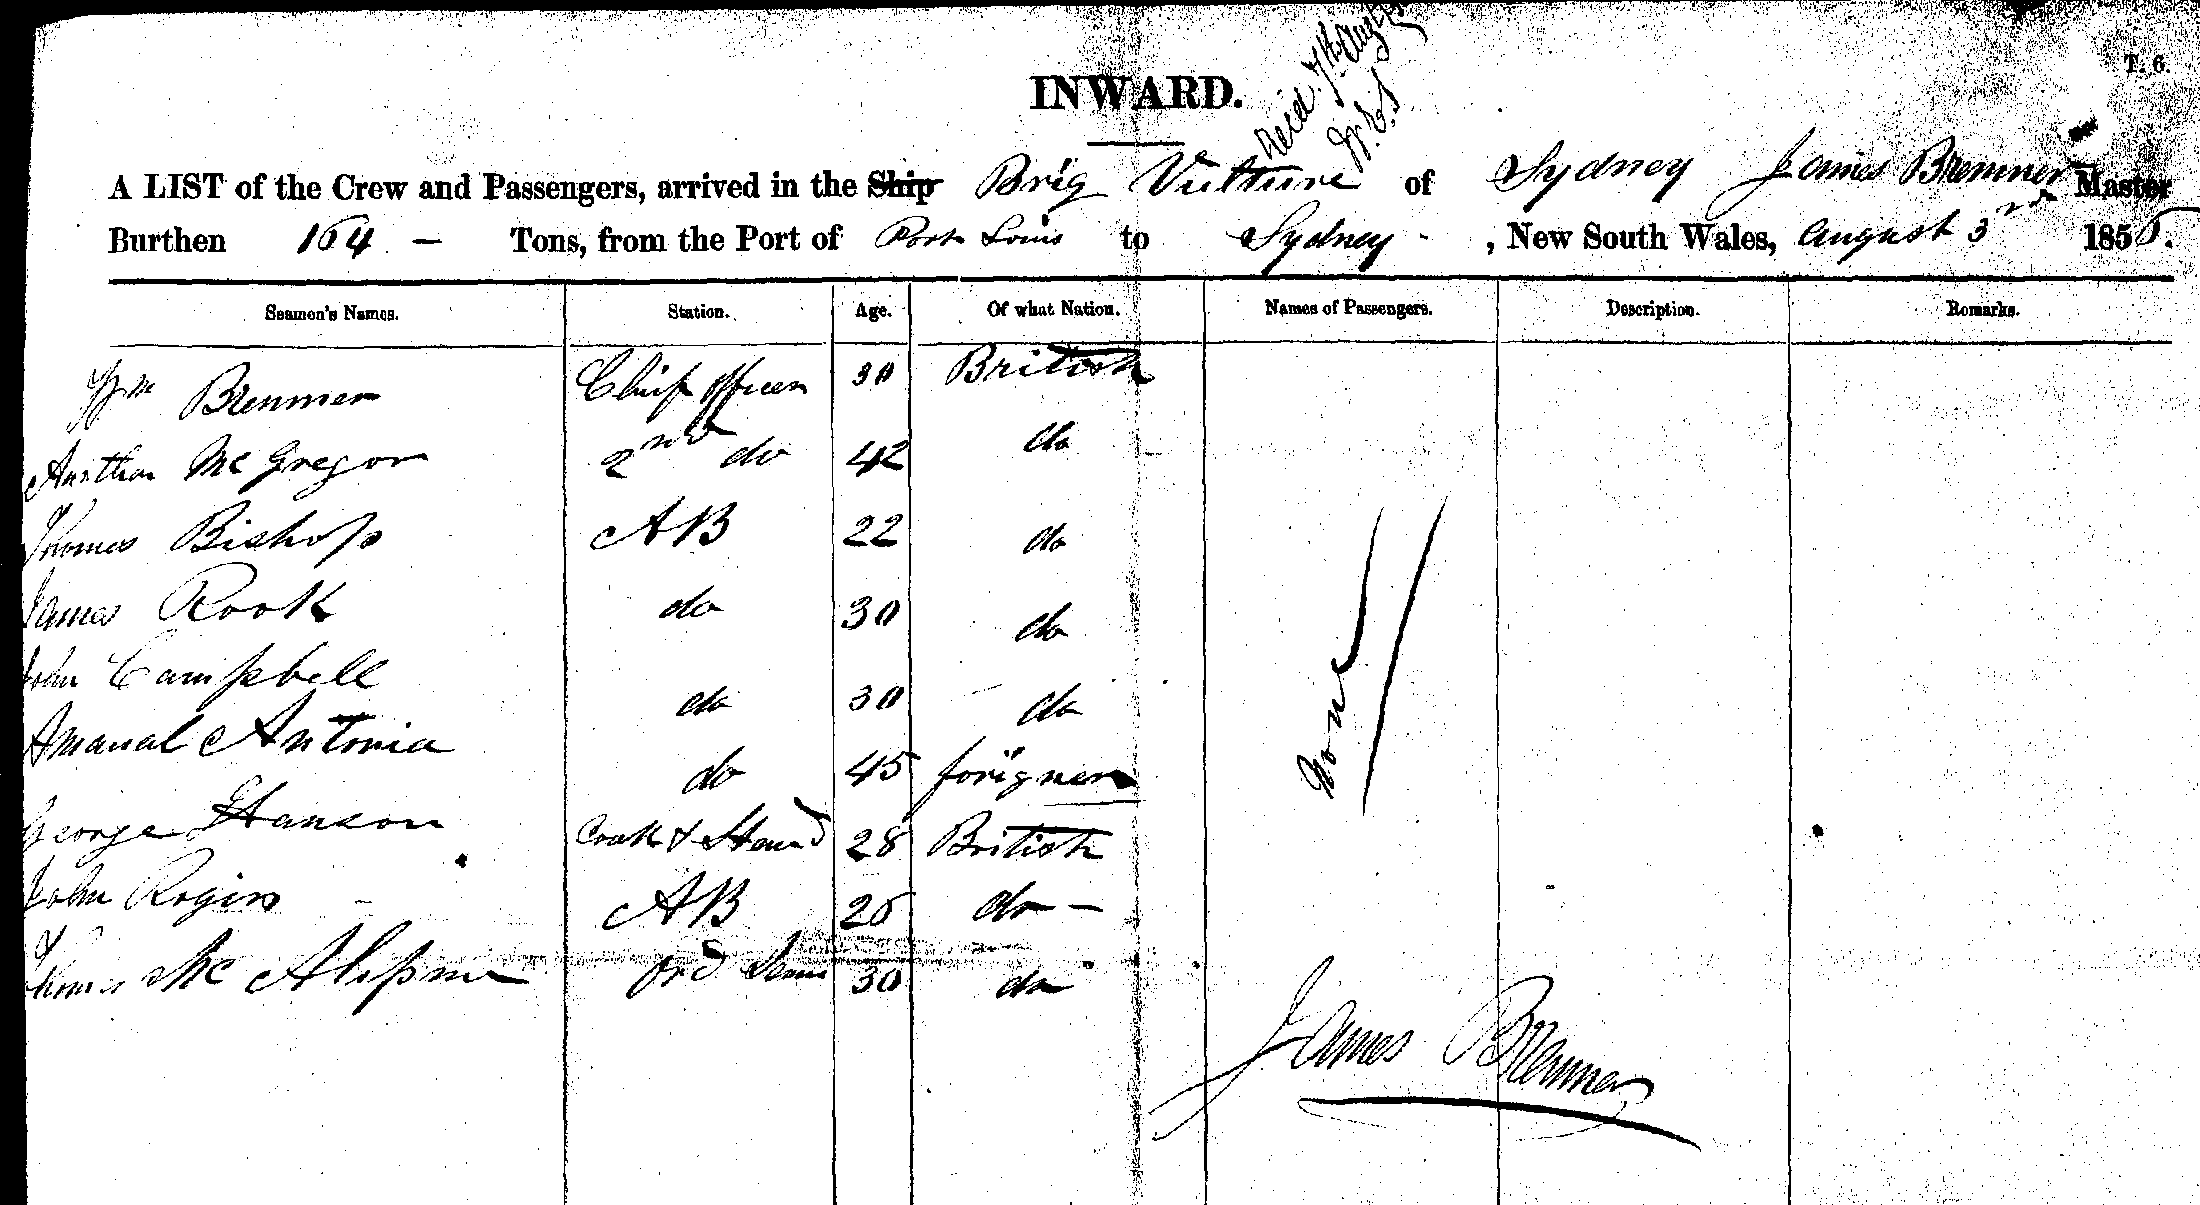 T. 6.
Recd. 7th Augt
INWARD.
A LIST of the Crew and Passengers, arrived in the Ship Brig Vulture of Sydney James Bremner Master
Burthen 164 – Tons, from the Port of Port Louis to Sydney - , New South Wales, August 3rd 185
Seamen's Names. Station. Age. Of what Nation. Names of Passengers. Description. Remarks.
Wm Bremner Chief Officer 30 British
McGregor 2nd do 42 do
Thomas Bishop AB 22 do
James Rook do 30 do
John Campbell do 30 do
Amanal Antonia do 45 forigner
George Hanson Cook & Steward 28 British
John Rogers AB do –
Thomas Mc Ord Seam 30 do
None
James Bremner